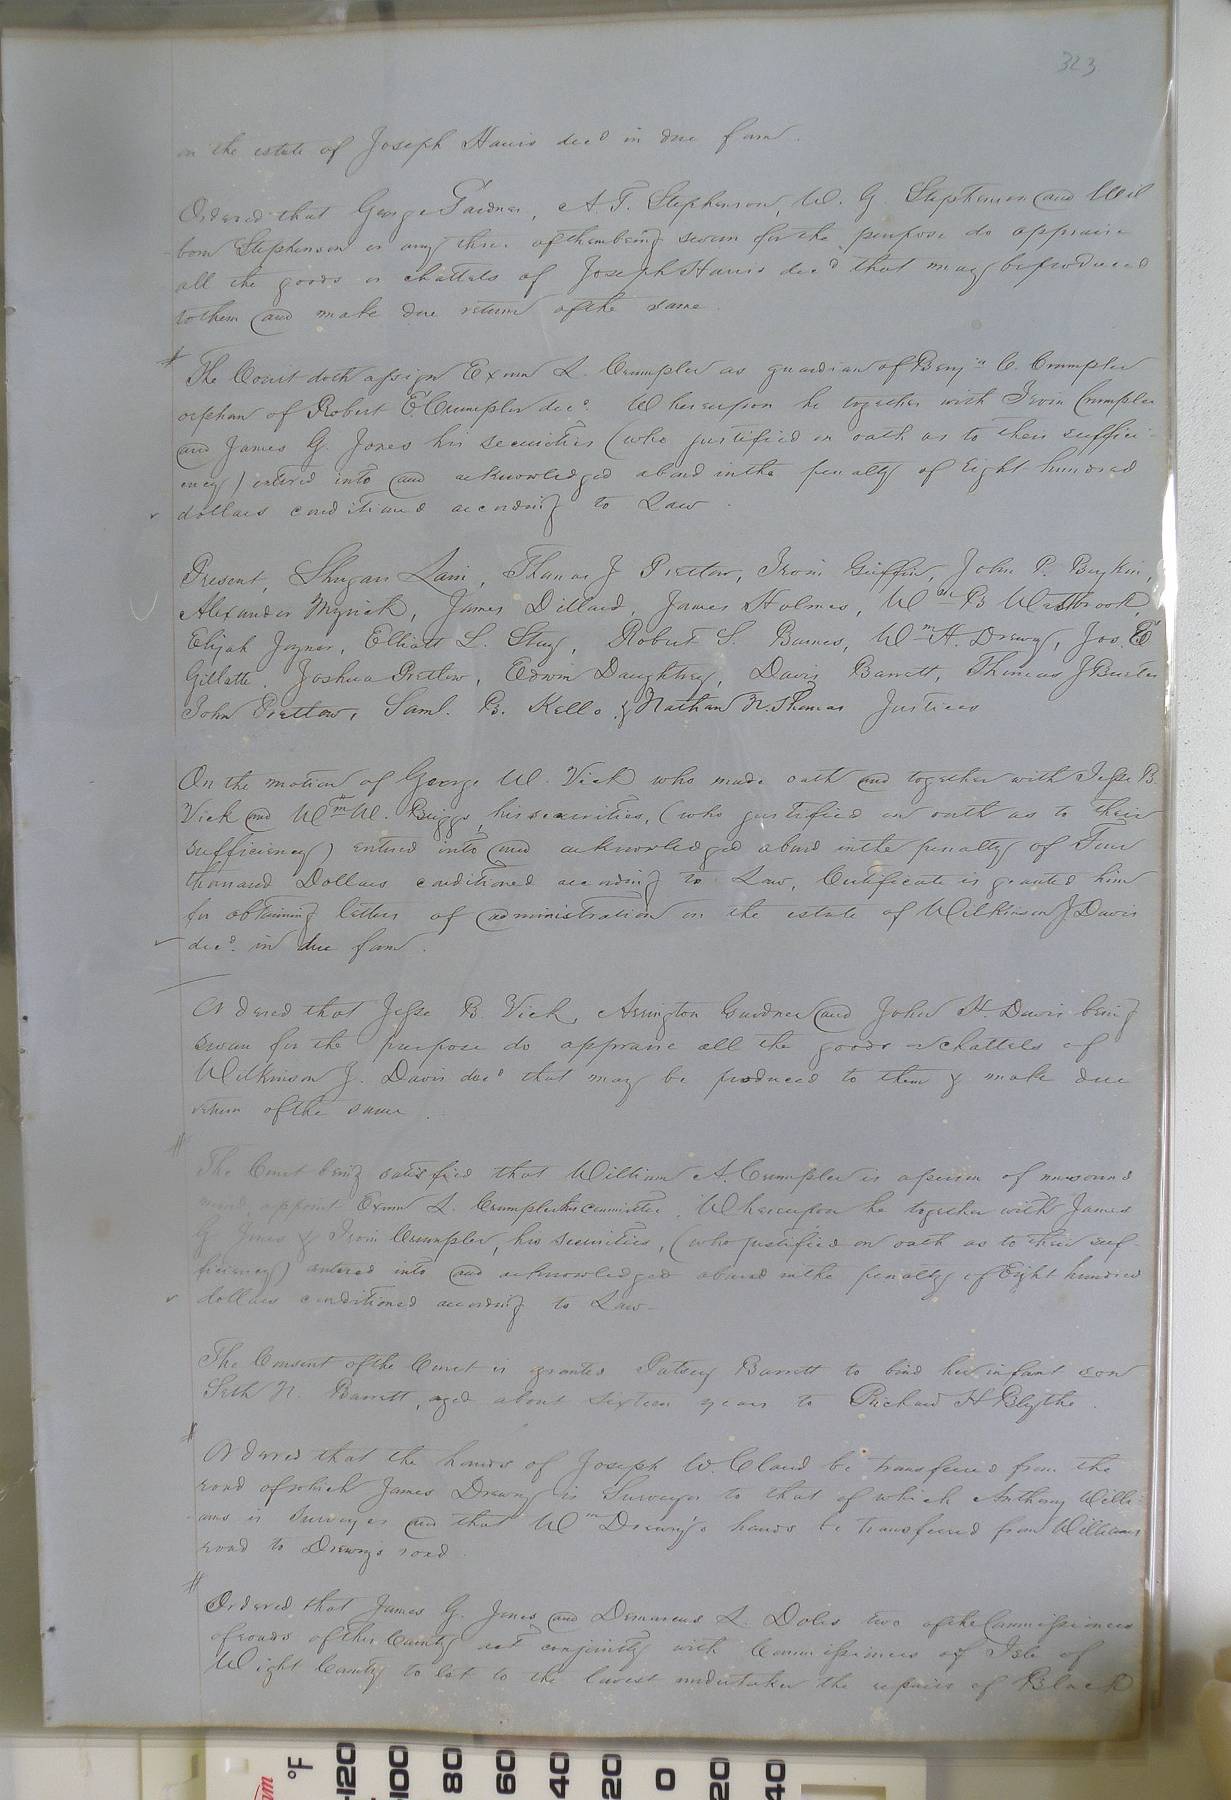 323
on the estate of Joseph Harris decd in due form.
Ordered that George Gardner, A. T. Stephenson, W. G. Stephenson and Wel
born Stephenson or any three of them being sworn for the purpose do appraise
all the goods or chattels of Joseph Harris decd that may be produced
to them and make due return of the same.
# The Court doth assign Exum L. Crumpler as guardian of Benjn C. Crumpler
orphan of Robert E Crumpler decd. Whereupon he together with Irvin Crumpler
and James G. Jones his securities (who justified on oath as to their suffici-
ency) entered into and acknowledged a bond in the penalty of Eight hundred
dollars conditioned according to Law.
Present, Lain, Thomas J Pretlow, Irvin Griffin, John P. Boykin,
Alexander Myrick, James Dillard, James Holmes, Wm B Westbrook,
Elijah Joyner, Elliott L. Story, Robert S. Barnes, Wm H. Drewry, Jos. E
Gillette, Joshua Pretlow, Edwin Daughtrey, Davis Barrett, Thomas J
John Pretlow, Saml. B. Kello & Nathan N. Thomas Justices
On the motion of George W. Vick who made oath and together with Jesse B.
Vick and Wm W. Briggs, his securities, (who justified on oath as to their
sufficiency) entered into and acknowledged a bond in the penalty of Four
thousand Dollars conditioned according to Law, Certificate is granted him
for obtaining letters of administration on the estate of Wilkinson J. Davis
decd. in due form.
Ordered that Jesse B. Vick, Arrington Gardner and John H. Davis being
sworn for the purpose do appraise all the goods or chattels of
Wilkinson J. Davis decd that may be produced to them & make due
return of the same.
# The Court being satisfied that William A. Crumpler is a person of unsound
mind, appoint Exum L. Crumpler his committee. Whereupon he together with James
G Jones & Irvin Crumpler, his securities, (who justified on oath as to their suf-
ficiency) entered into and acknowledged a bond in the penalty of Eight hundred
dollars conditioned according to Law-
The Consent of the Court is granted Patsey Barrett to bind her infant son
Seth N. Barrett, aged about sixteen years to Richard H Blythe.
# Ordered that the hands of Joseph W. Claud be transferred from the
road of which James Drewry is Surveyor to that of which Anthony Willi-
ams is Surveyor and that Wm Drewry's hands be transferred from Williams
road to Drewry's road.
# Ordered that James G. Jones and Demarcus L. Doles two of the Commissioners
of roads of this County act conjointly with Commissioners of Isle of
Wight County to let to the lowest undertaker the repairs of Black
°F
-120 -100 80 60 40 20 0 20 40